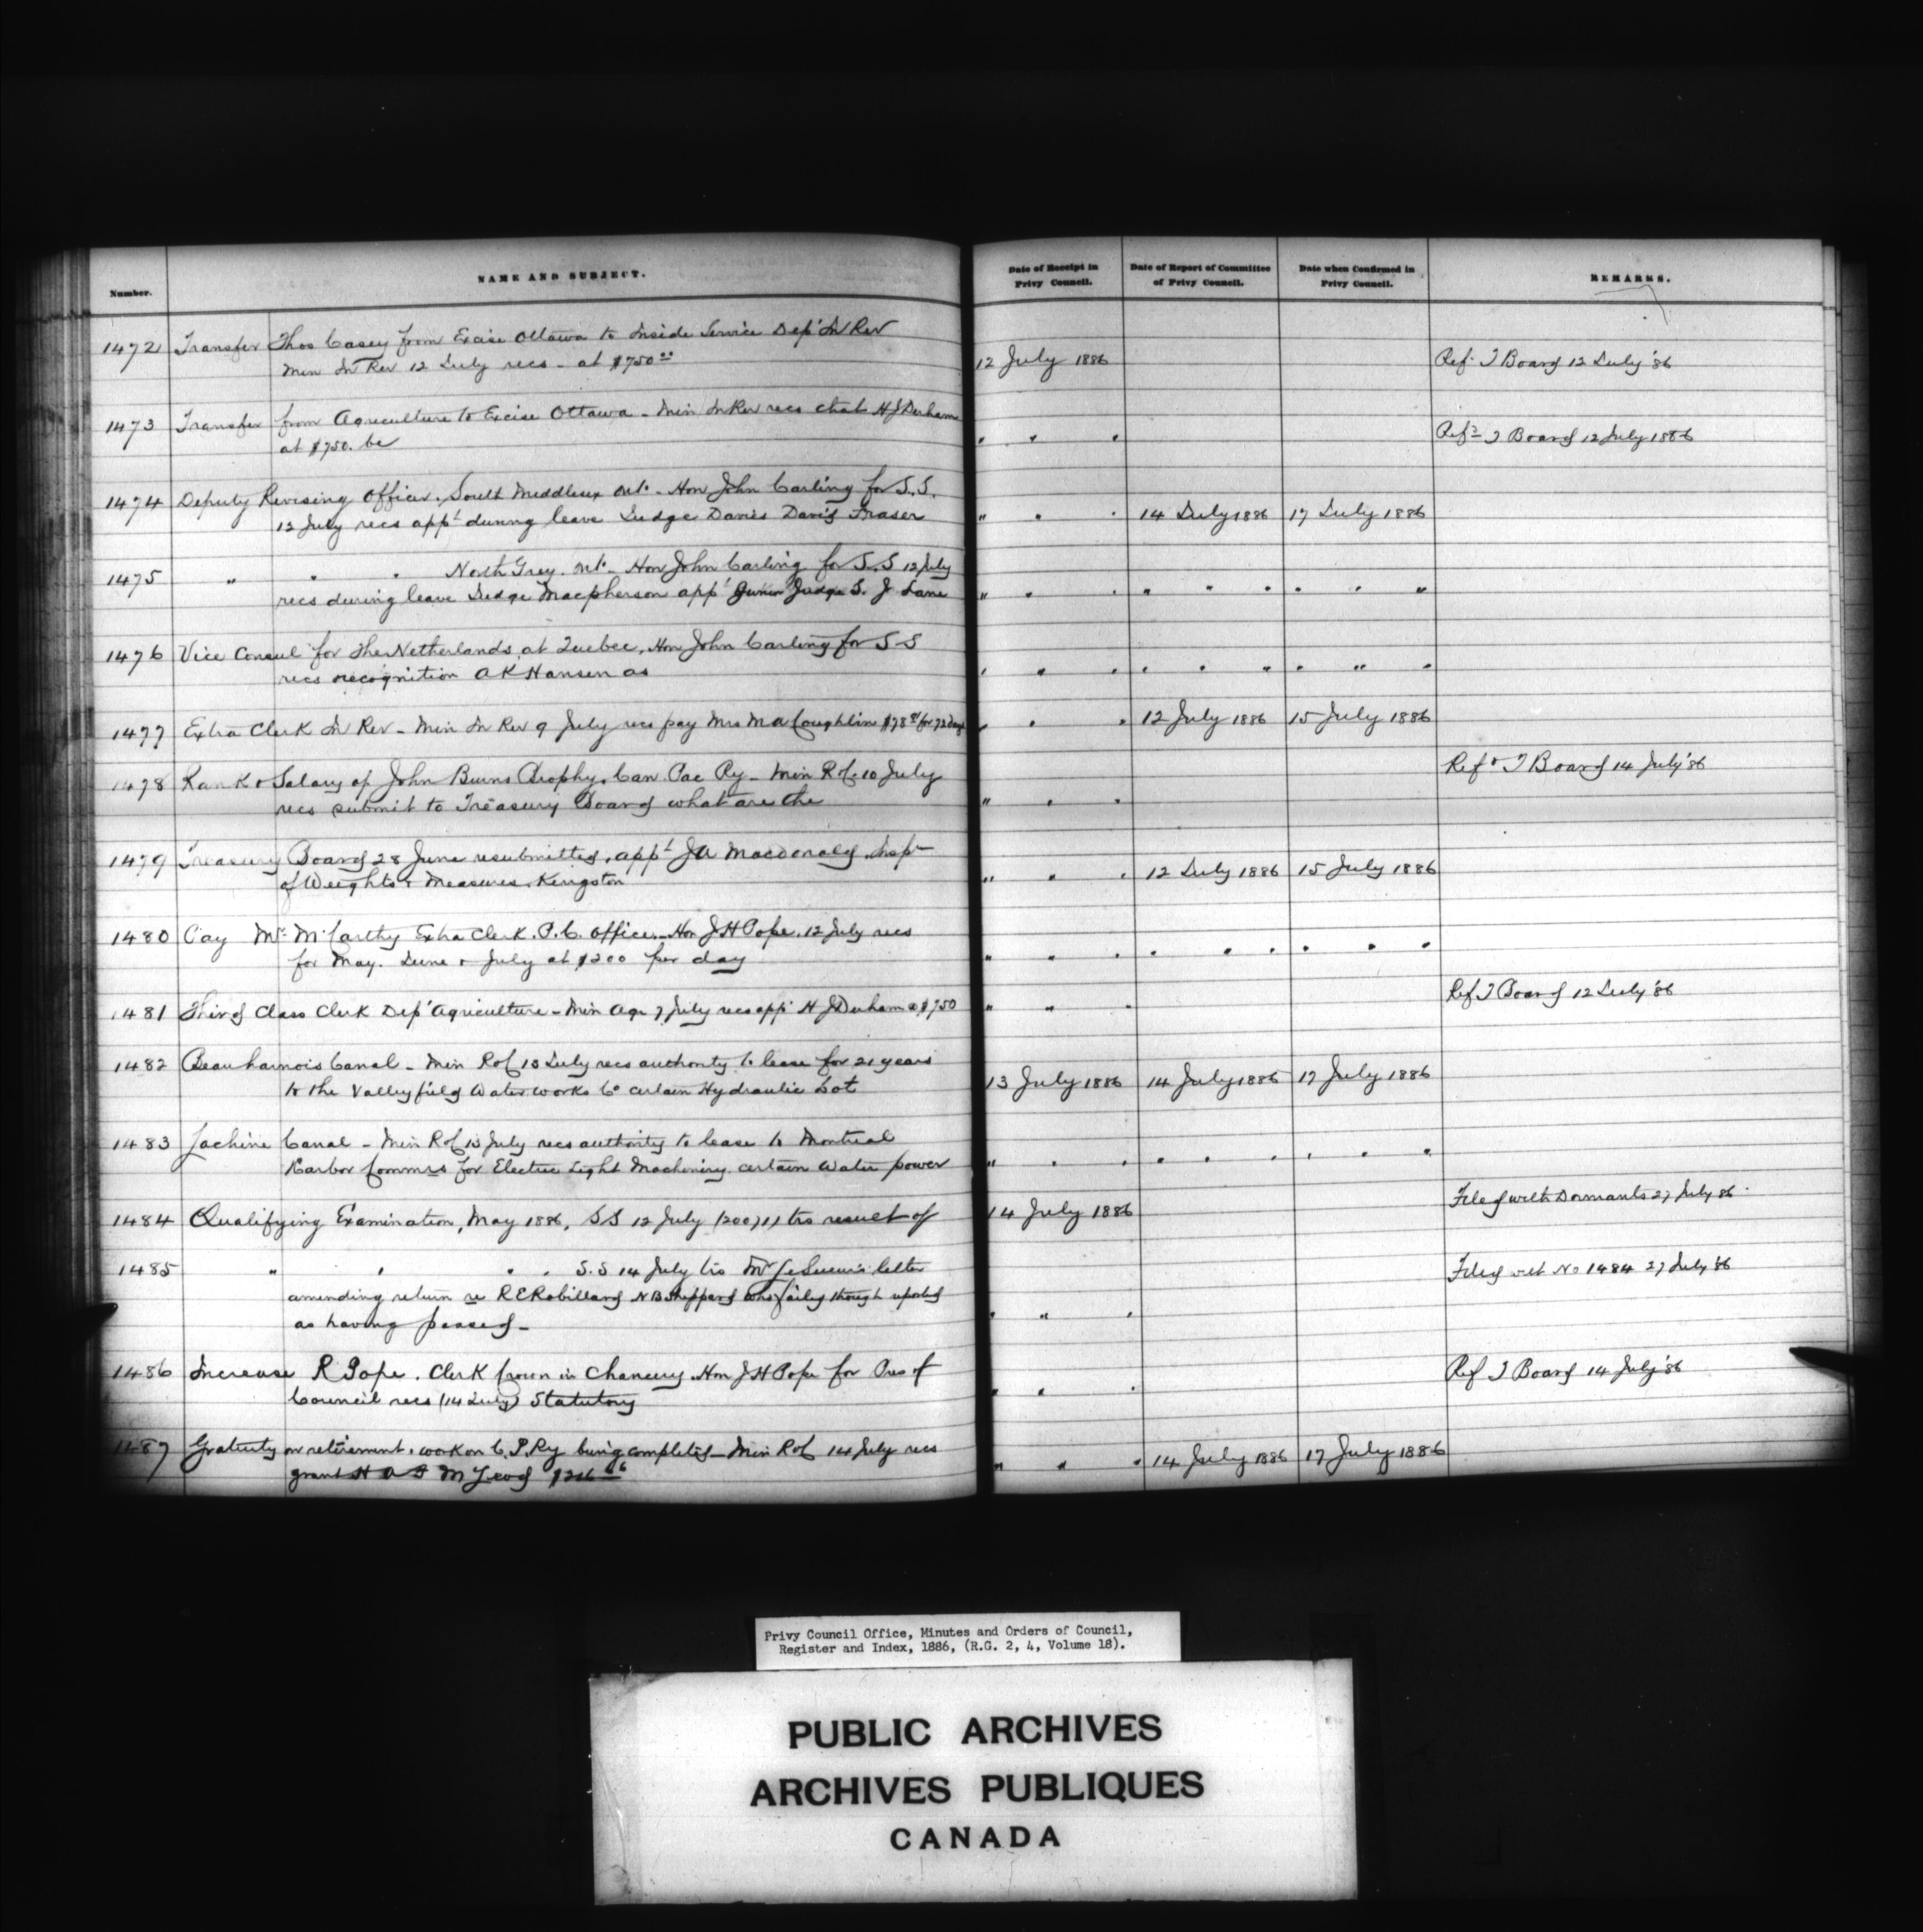 Number.
NAME AND SUBJECT.
Date of Receipt in Privy Council.
Date of Report of Committee of Privy Council.
Date when Confirmed in Privy Council.
REMARKS.
1472 Transfer Thos Casey from Excise Ottawa to Inside Service Dept In Rev
Min In Rev 12 July recs - at $750.00 12 July 1886 Ref T Board 12 July '86
1473 Transfer from Agriculture to Excise Ottawa - Min In Rev recs that H J Durham
at $750. be " " " Refd T Board 12 July 1886
1474 Deputy Revising Officer. South Middlesex Ont. - Hon John Carling for S.S.
12 July recs appt during leave Judge Davis David Fraser " " " 14 July 1886 17 July 1886
1475 " " " North Grey. Ont. - Hon John Carling for S.S 12 July
recs during leave Judge Macpherson appt Junior Judge S. J Lane " " " " " " " " "
1476 Vice Consul for The Netherlands at Quebec, Hon John Carling for S S
recs recognition A K Hansen as " " " " " " " " "
1477 Extra Clerk In Rev - Min In Rev 9 July recs pay Mrs M A Coughlin for 72 days " " " 12 July 1886 15 July 1886
1478 Rank & Salary of John Burns Brophy. Can Pac Ry - Min R & C 10 July Refd T Board 14 July '86
recs submit to Treasury Board what are the " " "
1479 Treasury Board 28 June resubmitted. appt J A Macdonald. Inspr
of Weights & Measures. Kingston " " " 12 July 1886 15 July 1886
1480 Pay Mr McCarthy Extra Clerk. P.C. Office. - Hon J H Pope. 12 July recs
for May. June & July at $2.00 per day " " " " " " " " "
1481 Third Class Clerk Dept Agriculture - Min Agr 7 July recs appt H J Durham @ $750 " " " Ref T Board 12 July '86
1482 Beauharnois Canal - Min R & C 13 July recs authority to lease for 21 years
to the Valleyfield Water works Co certain Hydraulic Lot 13 July 1886 14 July 1886 17 July 1886
1483 Lachine Canal - Min R & C 13 July recs authority to lease to Montreal
Harbor Commrs for Electric Light Machinery. certain Water power " " " " " " " " "
1484 Qualifying Examination, May 1886, SS 12 July (20071) trs result of 14 July 1886 Filed with Dormants 27 July 86
1485 " " " " S.S 14 July trs Mr LeSueur's letter Filed with No 1484 27 July '86
amending return re R E Robillard N B Sheppard who failed though reported
as having passed - " " "
1486 Increase R Pope. Clerk Crown in Chancery. Hon J H Pope for Pres of Ref T Board 14 July '86
Council recs (14 July) Statutory " " "
1487 Gratuity on retirement. work on C.P.Ry being completed - Min R & C 14 July recs
grant H A F McLeod " " " 14 July 1886 17 July 1886
Privy Council Office, Minutes and Orders of Council,
Register and Index, 1886, (R.G. 2, 4, Volume 18).
PUBLIC ARCHIVES
ARCHIVES PUBLIQUES
CANADA